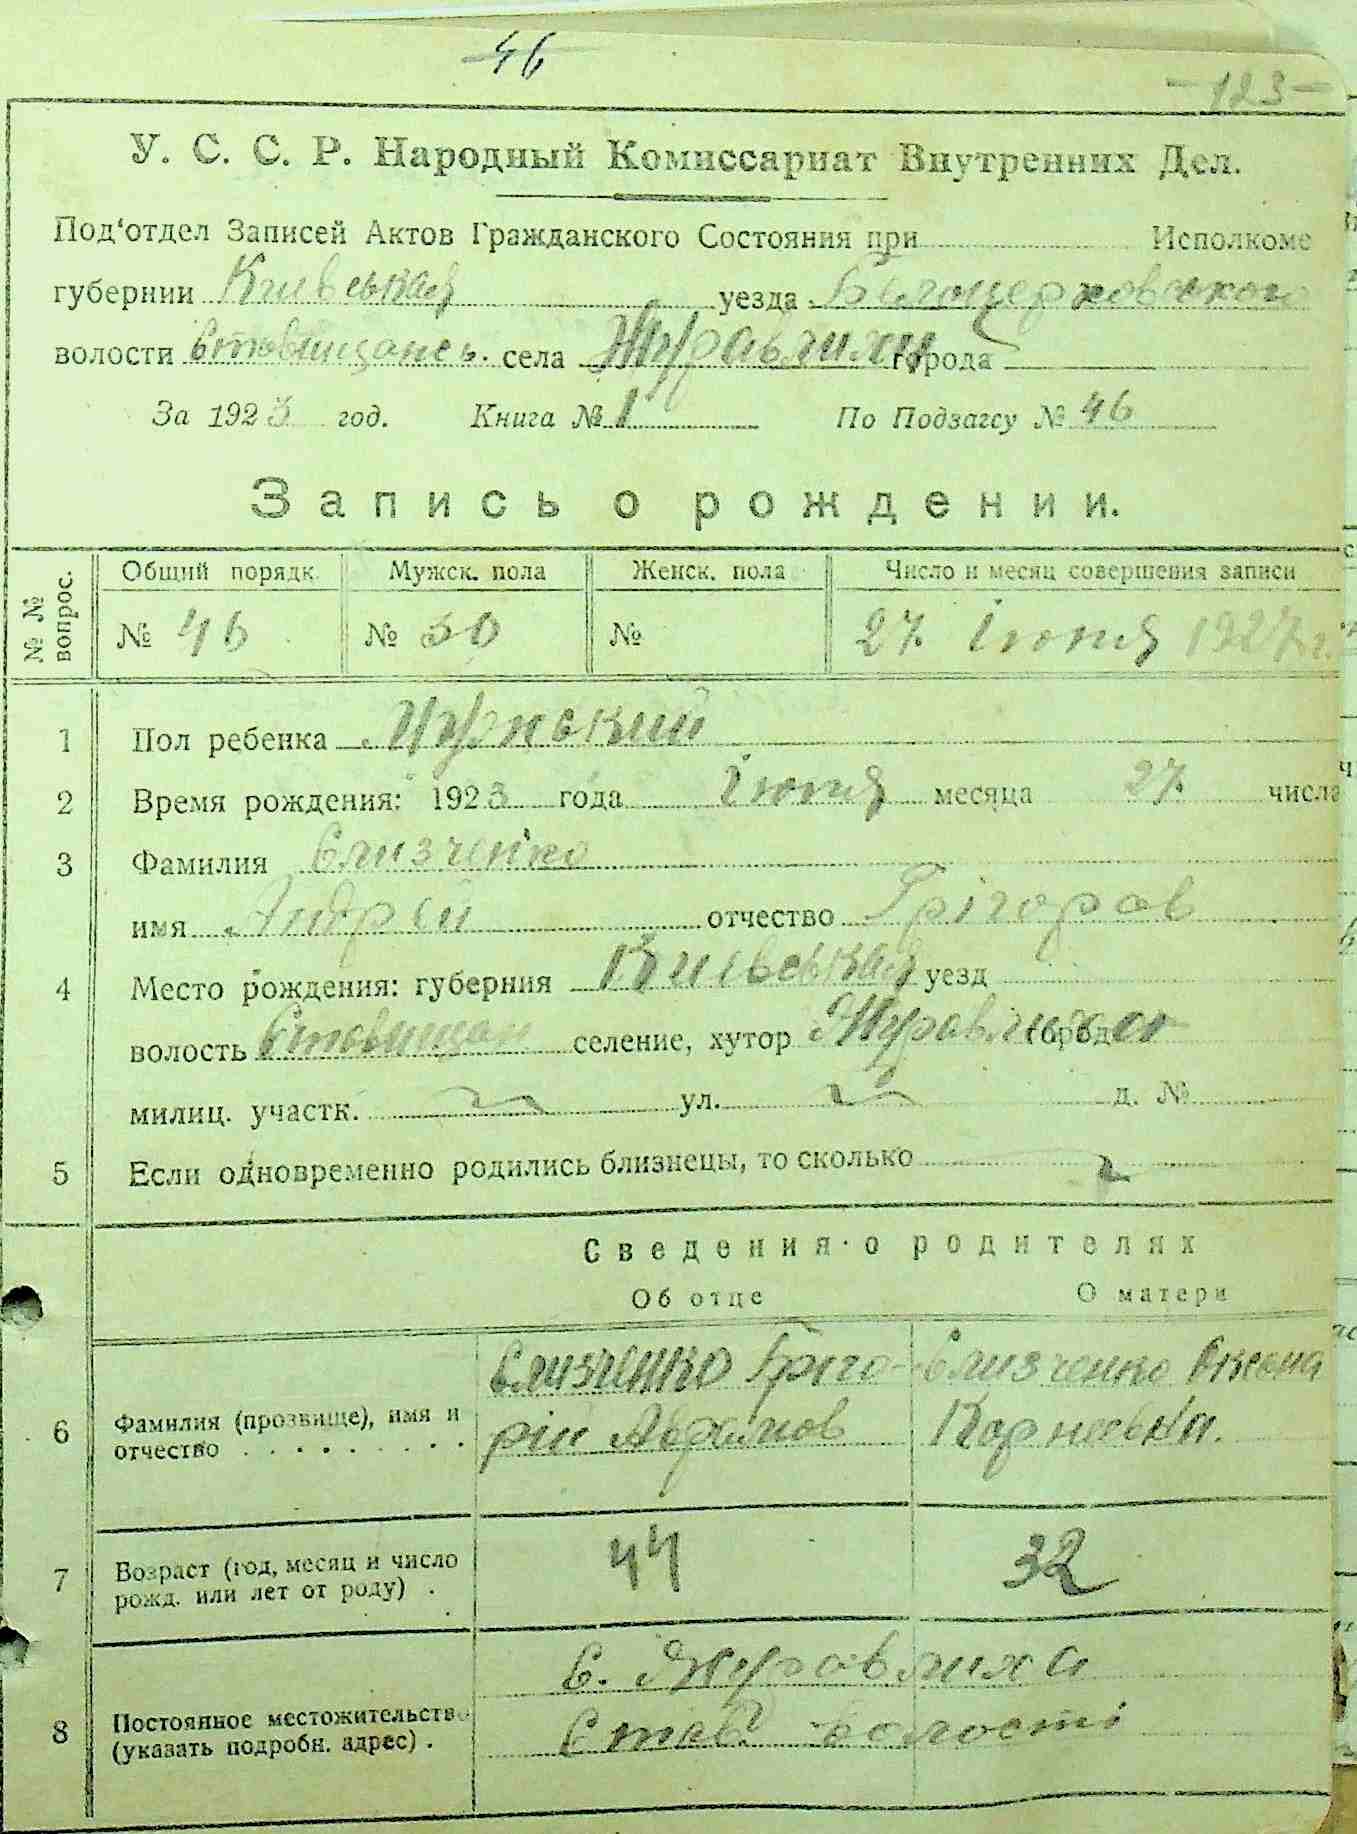 46
-123-
У. С. С. Р. Народный Комиссариат Внутренних Дел.
Под‘отдел Записей Актов Гражданского Состояния при Исполкоме
губернии Киевськая уезда Белоцерковского
волости Ставищанськ. села Журавлихи города
За 1923 год. Книга № 1 По Подзагсу № 46
Запись о рождении.
№ № вопрос. Общий порядк. Мужск. пола Женск. пола Число и месяц совершения записи
№ 46 № 30 № 27 Іюня 192 г.
1 Пол ребенка Мужський
2 Время рождения: 1923 года Іюня месяца 27 числа
3 Фамилия Єлизченко
имя Андрей отчество Грігоров
4 Место рождения: губерния Киевськая уезд
волость Ставищан селение, хутор Журавлиха город
милиц. участк. ул. д. №
5 Если одновременно родились близнецы, то сколько
Сведения о родителях
Об отце О матери
6 Фамилия (прозвище), имя и отчество Єлизченко Гріго- Єлизченко Оксена
рій Аврамов Карнеевна.
7 Возраст (год, месяц и число рожд. или лет от роду) . 44 32
8 Постоянное местожительство (указать подробн. адрес) . С. Журавлиха
Став. волості